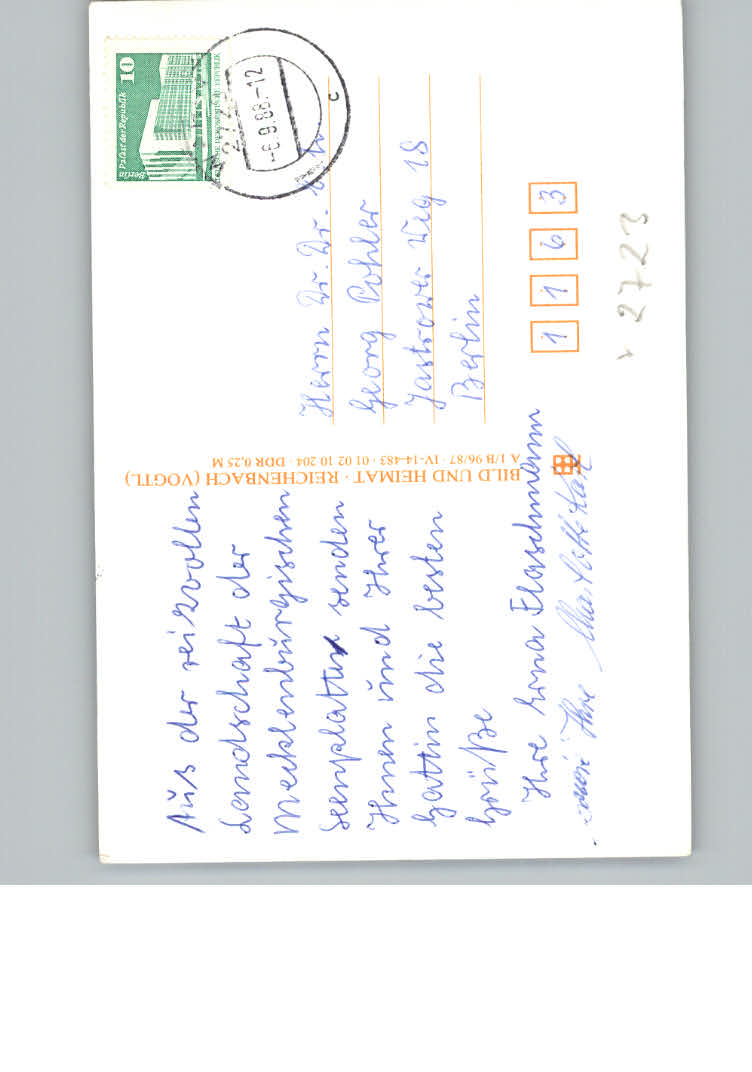 Auß der reizvollen
Landschaft der
Mecklenburgischen
Seenplatte senden
Ihnen und Ihrer
Gattin die besten
Grüße
Ihre Erna Flaschmann
sowie Ihre
BILD UND HEIMAT · REICHENBACH (VOGTL)
A 1/B 96/87 · IV-14-483 · 01 02 10 204 · DDR 0,25 M
10
Palast der Republik
Berlin
DEMOKRATISCHE REPUBLIK
-6.9.88.-12
c
Herrn Dr. Dr.
Georg Pohler
Jastrower Weg 18
Berlin
1 1 6 3
2723